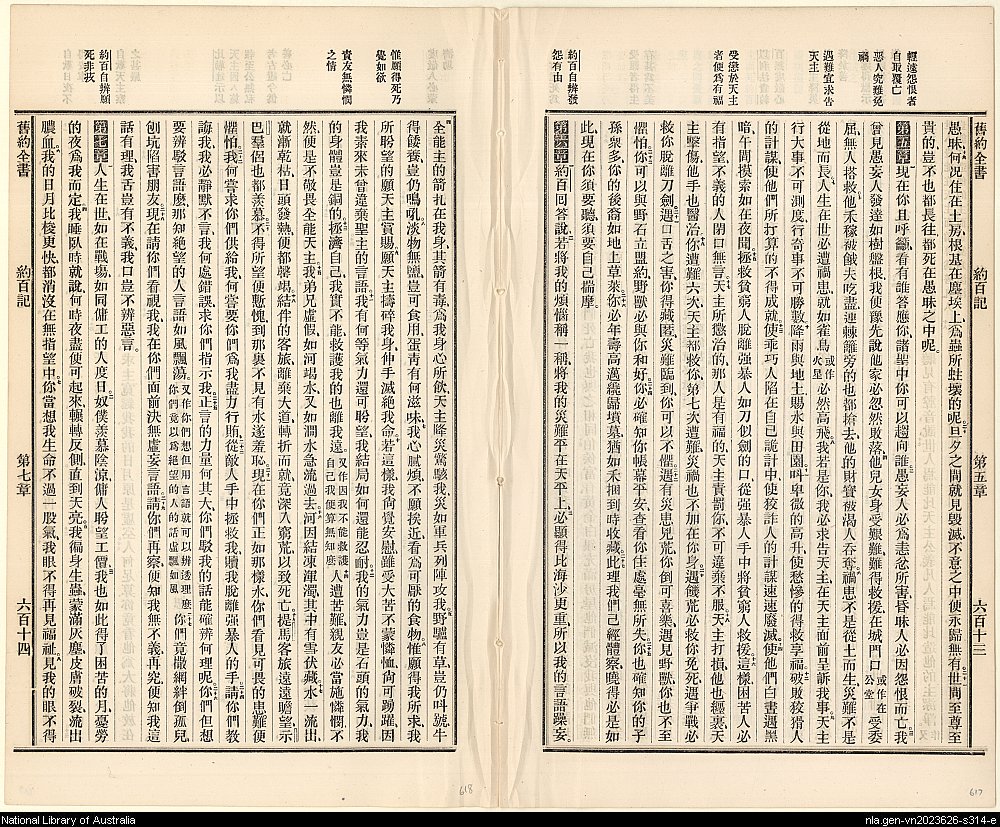 舊約全書
約百記
第五章
六百十三
輕遽怨恨者
自取覆亡
惡人究難免
禍
遇難宜求告
天主
受懲於天主
者便爲有福
約百自辨發
怨有由
愚昧何况住在土房根基在塵埃上爲蟲所蛀壞的呢旦夕之間就見毀滅不意之中便永歸無有世間至尊至
貴的豈不也都長往都死在愚昧之中呢
第五章現在你且呼籲看有誰答應你諸聖中你可以趨向誰愚妄人必爲恚忿所害昏昧人必因怨恨而亡我
曾見愚妄人發達如樹盤根我便豫先說他家必忽然敗落他兒女身受艱難難得救援在城門口或作在公堂受委
屈無人搭救他禾稼被餓夫吃盡連棘籬旁的也都搶去他的財寶被渴人吞奪禍患不是從土而生災難不是
從地而長人生在世必遭禍患就如雀鳥或作火星必然高飛我若是你我必求告天主在天主面前呈訴我事天主
行大事不可測度行奇事不可勝數降雨與地土賜水與田園叫卑微的高升使愁慘的得救享福破敗狡猾人
的計謀使他們所打算的不得成就使乖巧人陷在自己詭計中使狡詐人的計謀速速廢滅使他們白晝遇黑
暗午間摸索如在夜間拯救貧窮人脫離強暴人如刀似劍的口從強暴人手中將貧窮人救援這樣困苦人必
有指望不義的人閉口無言天主所懲治的那人是有福的天主責罰你不可違棄不服天主打損他也經裹天
主擊傷他手也醫治你遭難六次天主都救你第七次遭難災禍也不加在你身遇饑荒必救你免死遇爭戰必
救你脫離刀劍遇口舌之害你得藏匿災難臨到你可以不懼遇有災患兇荒你倒可喜樂遇見野獸你也不至
懼怕你可以與田間石立盟約野獸必與你和好你必確知你帳幕平安查看你住處毫無所失也必確知你的子
孫衆多你的後裔如地上草萊你必年壽高邁纔歸墳墓猶如禾捆到時收藏此理我們已經體察曉得必是如
此現在你須要聽須要自己揣摩
第六章約百回答說若將我的煩惱稱一稱將我的災難平在天平上必顯得比海沙更重所以我的言語躁妄
全能主的箭扎在我身其箭有毒爲我身心所飲天主降災驚駭我災如軍兵列陣攻我野驢有草豈仍叫號牛
得餧養豈仍鳴吼淡物無鹽豈可食用蛋靑有何滋味我心膩煩不願挨近看爲可厭的食物惟願得我所求我
所盼望的願天主賞賜願天主擣碎我身伸手滅絕我命若這樣我尙覺安慰雖受大苦不蒙憐恤尙可踴躍因
我素來未曾違棄聖主的言語我有何等氣力還可盼望我結局如何還能忍耐我的氣力豈是石頭的氣力我
的身體豈是銅的拯濟自己我實不能救護我的也離我遠又作因我不能救護自己我便算無知麽人遭苦難親友必當施憐憫不
然便是不敬畏全能天主我弟兄虛假如河塌水又如澗水急流過去河因結凍渾濁其中有雪伏藏水一流出
就漸乾枯日頭發熱便都罄竭結伴的客旅離棄大道轉折而就竟深入窮荒以致死亡提馬客旅遠遠瞻望示
巴羣侶也都羨慕不得所望便慙愧到那裏不見有水遂羞恥現在你們正如那樣水你們看見可畏的患難便
懼怕我何嘗求你們供給我何嘗要你們爲我盡力行賄從敵人手中拯救我贖我脫離強暴人的手請你們教
誨我我必靜默不言我何處錯誤求你們指示我正言的力量何其大你們駁我的話能確辨何理呢你們但想
要辨駁言語麽那知絕望的人言語如風飄蕩又作你們想但用言語就可以辨透理麽你們竟以爲絕望的人的話虛飄如風你們竟撒網絆倒孤兒
刨坑陷害朋友現在請你們看視我我在你們面前決無虛妄言語請你們再察便知我無不義再究便知我這
話有理我舌豈有不義我口豈不辨惡言
第七章人生在世如在戰塲如同傭工的人度日奴僕羨慕陰涼傭人盼望工價我也如此得了困苦的月憂勞
的夜爲我而定我睡臥時就說何時夜盡便可起來輾轉反側直到天亮我徧身生蟲蒙滿灰塵皮膚破裂流出
膿血我的日月比梭更快都消沒在無指望中你當想我生命不過一股氣我眼不得再見福祉見我的眼不得
惟願得死乃
覺如欲
責友無憐憫
之情
約百自辨願
死非妄
舊約全書
約百記
第七章
六百十四
618
617
National Library of Australia
nla.gen-vn2023626-s314-e